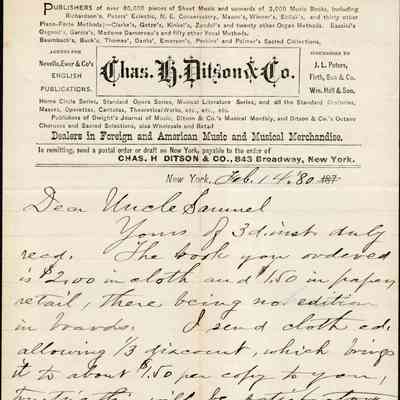 PUBLISHERS of over 80,000 pieces of Sheet Music and upwards of 3,000 Music Books, including
Richardson's, Peters' Eclectic, N. E. Conservatory, Mason's, Winner's, and thirty other
Piano-Forte Methods;—Clarke's, Getze's, Kinkel's, Zundel's and twenty other Organ Methods. Bassini's
Cegonl's, Garcia's, Madame Damoreau's and fifty other Vocal Methods.
Baumbach's, Buck's, Thomas', Danks', Emerson's, Perkins' and Palmer's Sacred Collections.
AGENTS FOR
Novello, Ewer & Co's
ENGLISH
PUBLICATIONS.
Chas. H. Ditson & Co.
SUCCESSORS TO
J. L. Peters,
Firth, Son & Co.
Wm. Hall & Son.
Home Circle Series, Standard Opera Series, Musical Literature Series, and all the Standard Oratorios,
Masses, Operettas, Cantatas, Theoretical Works, etc., etc., etc.
Publishers of Dwight's Journal of Music, Ditson & Co.'s Musical Monthly, and Ditson & Co.'s Octavo
Choruses and Sacred Selections, also Wholesale and Retail
Dealers in Foreign and American Music and Musical Merchandise.
In remitting, send a postal order or draft on New York, payable to the order of
CHAS. H DITSON & CO., 843 Broadway, New York.
New York, Feb. 14. 80 187
Dear Uncle Samuel
Yours of 3d inst duly
recd. The book you ordered
is $2.00 in cloth and $1.50 in paper
retail, there being no edition
in boards. I send cloth ed.
allowing 1/3 discount, which brings
it to about $1.50 per copy to you,
will be